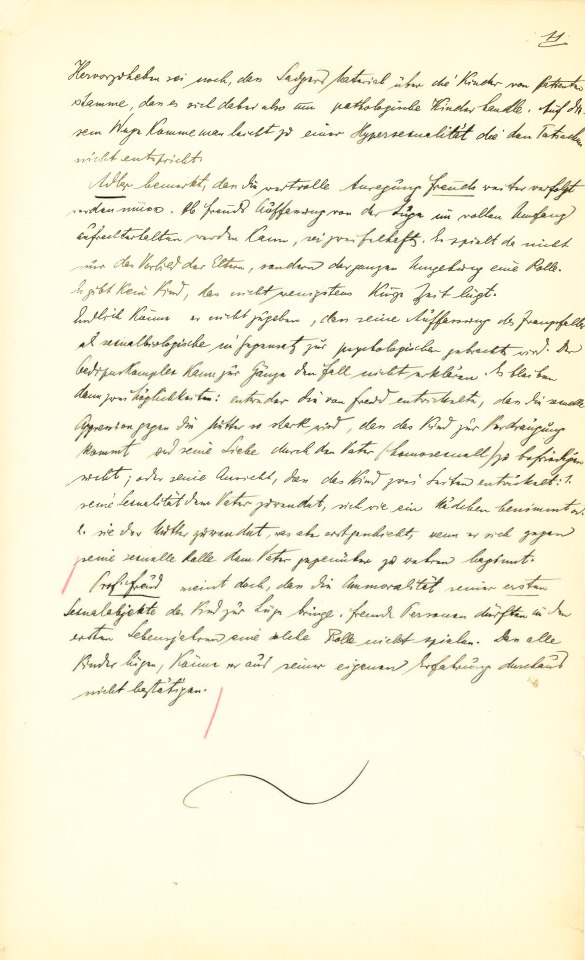 11.
Hervorzuheben sei noch, dass Sadgers Material über die Kinder von Patienten
stamme, dass es sich dabei also um pathologische Kinder handle. Auf die-
sem Wege komme man leicht zu einer Hypersexualität die den Tatsachen
nicht entspricht.
Adler bemerkt, dass die wertvolle Anregung Freuds weiter verfolgt
werden müsse. Ob Freuds Auffassung von der Lüge im vollen Umfang
aufrechterhalten werden kann, sei zweifelhaft. Es spielt da nicht
nur das Vorbild der Eltern, sondern der ganzen Umgebung eine Rolle.
Es gibt kein Kind, das nicht wenigstens kurze Zeit lügt.
Endlich könne er nicht zugeben, dass seine Auffassung des Zwangsfalles
als sexualbiologische in Gegensatz zur psychologischen gebracht wird. Der
Ödipuskomplex kann zur Gänze den Fall nicht erklären. Es bleiben
dann zwei Möglichkeiten: entweder die von Freud entwickelte, dass die sexuelle
Aggression gegen die Mutter so stark wird, dass das Kind zur Verdrängung
kommt und seine Liebe durch den Vater (homosexuell) zu befriedigen
sucht; oder seine Ansicht, dass das Kind zwei Seiten entwickelt: 1.
seine Sexualität dem Vater zuwendet, sich wie ein Mädchen benimmt od.
2. sie der Mutter zuwendet, was aber erst geschieht, wenn er sich gegen
seine sexuelle Rolle dem Vater gegenüber zu wehren beginnt.
Prof. Freud meint doch, dass die Unmoralität seiner ersten
Sexualobjekte das Kind zur Lüge bringe. Fremde Personen dürften in den
ersten Lebensjahren eine solche Rolle nicht spielen. Dass alle
Kinder lügen, könne er aus seiner eigenen Erfahrung durchaus
nicht bestätigen.